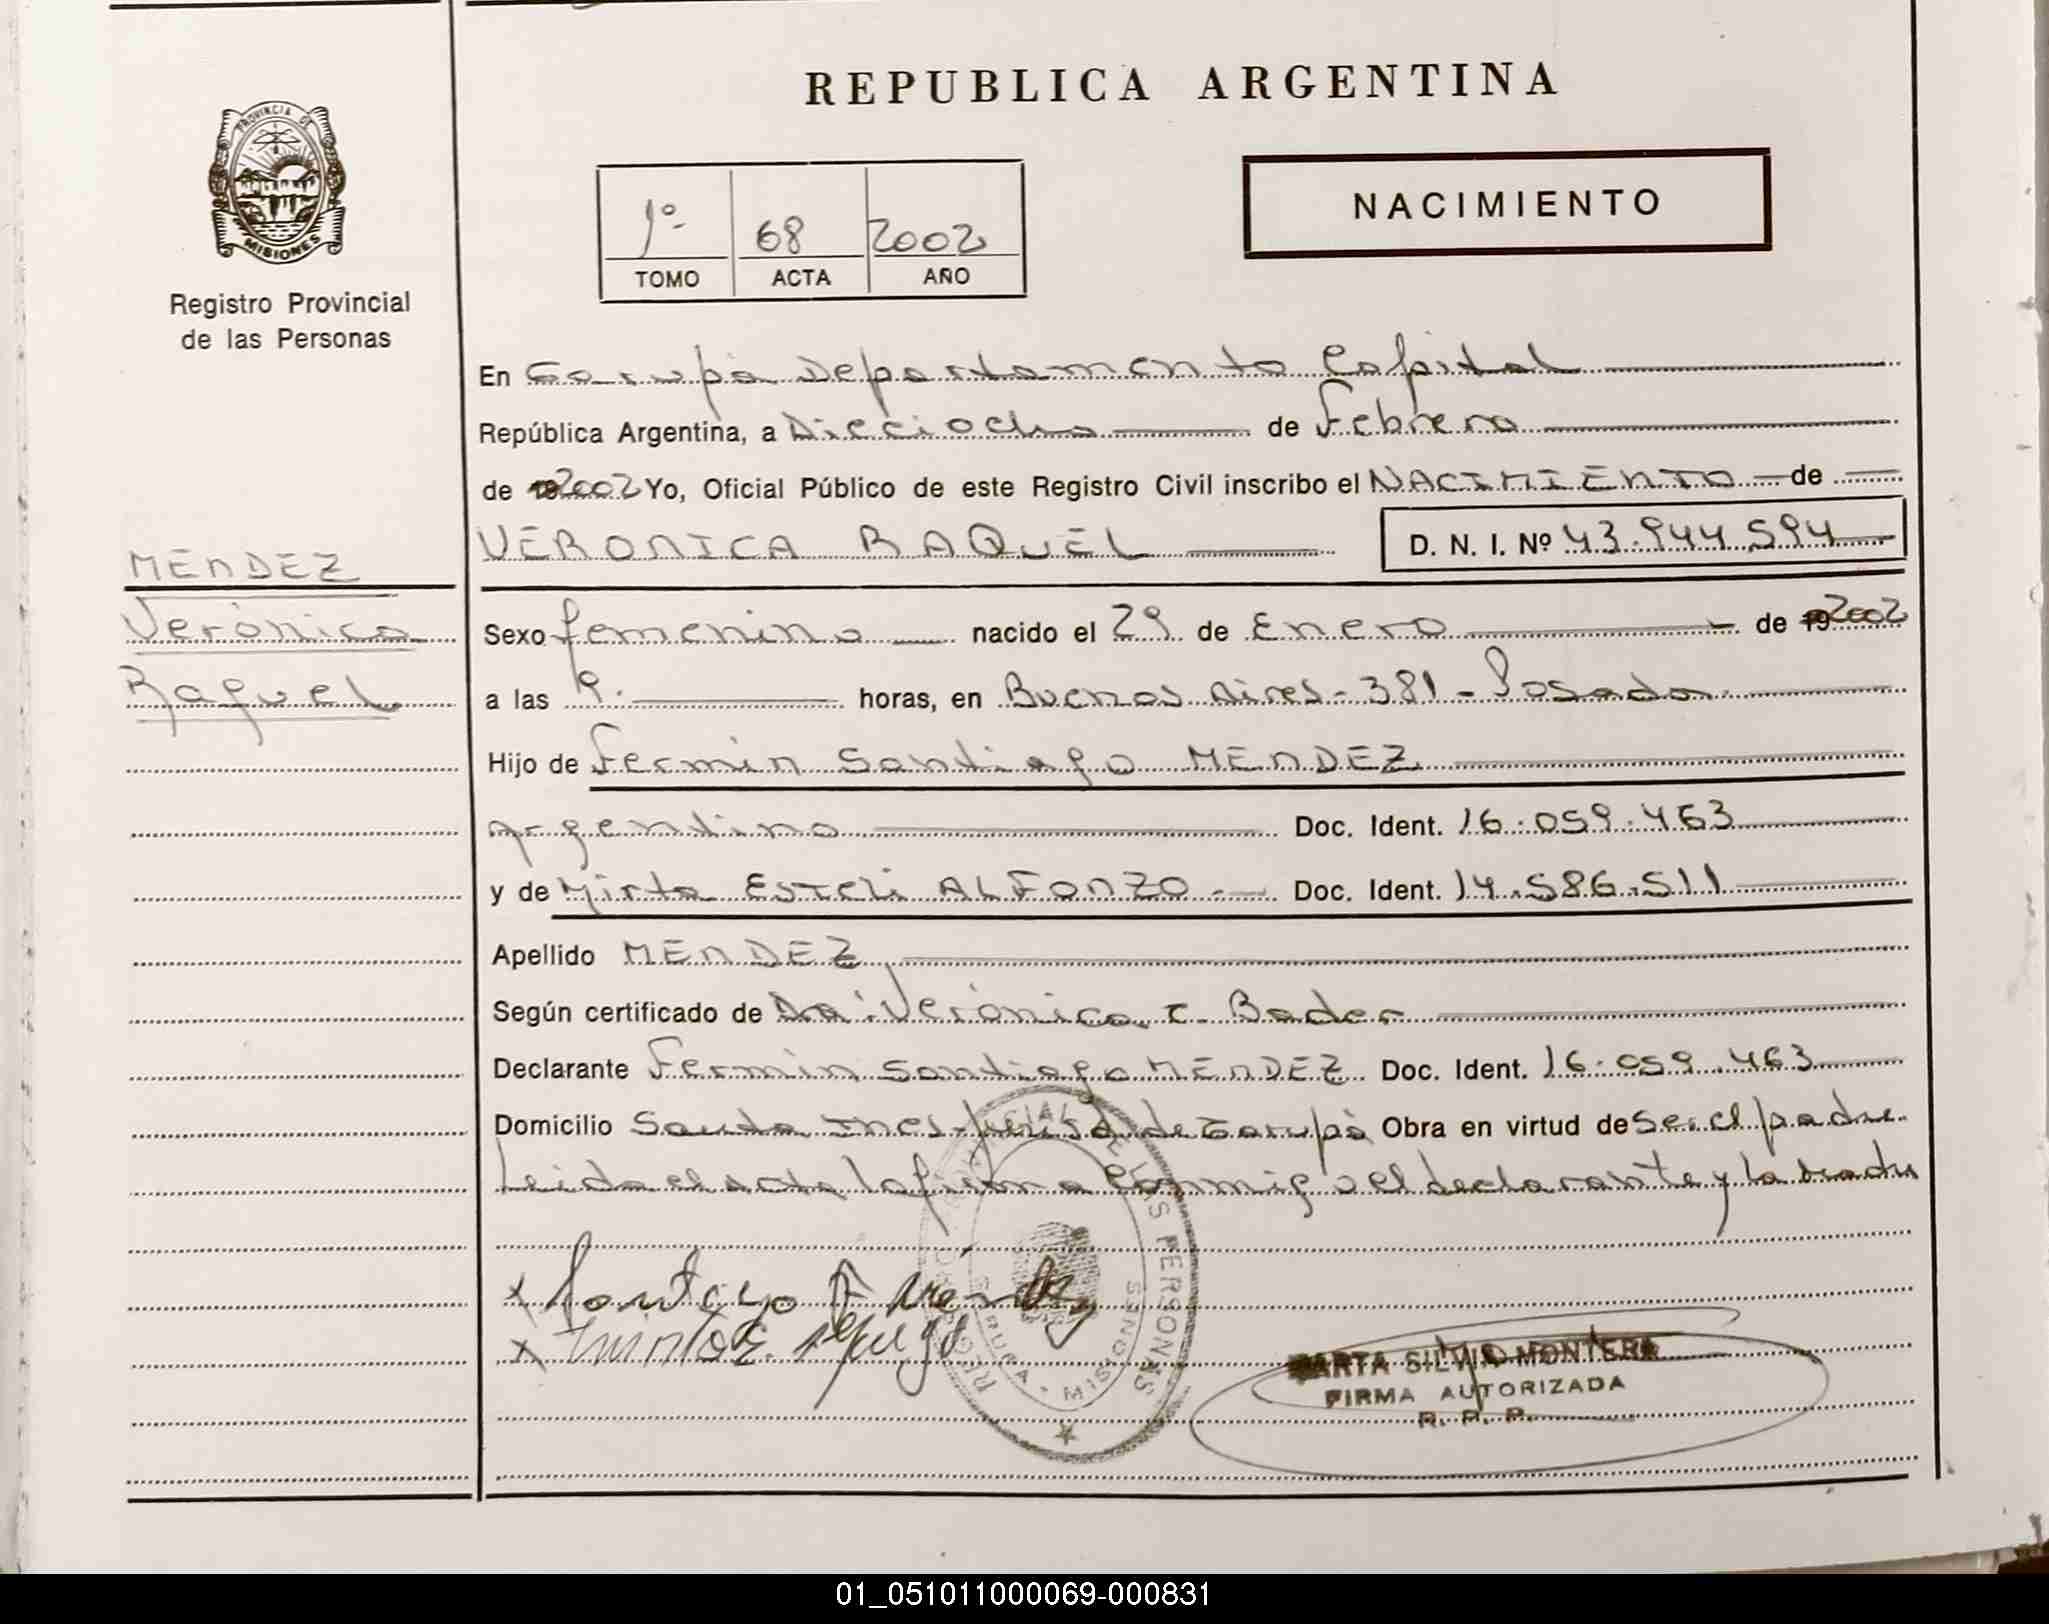 REPUBLICA ARGENTINA
PROVINCIA DE
MISIONES
Registro Provincial
de las Personas
1º 68 2002
TOMO ACTA AÑO
NACIMIENTO
En Garupá Departamento Capital
República Argentina, a Dieciocho de Febrero
de 2002 Yo, Oficial Público de este Registro Civil inscribo el NACIMIENTO de
VERONICA RAQUEL D. N. I. Nº 43.944.594
MENDEZ
Verónica
Raquel
Sexo femenino nacido el 29 de Enero de 2002
a las 9. horas, en Buenos Aires - 381 - Posadas
Hijo de Fermin Santiago MENDEZ
argentino Doc. Ident. 16.059.463
y de Mirta ESTELI ALFONZO.- Doc. Ident. 14.586.511
Apellido MENDEZ
Según certificado de Dra. Verónica. C. Bader
Declarante Fermin Santiago MENDEZ Doc. Ident. 16.059.463
Domicilio Santa Ines - Jurisd. de Garupá Obra en virtud de Ser el padre.
Leida el acta la firma conmigo el declarante y la madre
REGISTRO PROVINCIAL DE LAS PERSONAS
GARUPA - MISIONES
x Santiago F Mendez
MARTA SILVIA MONTERA
FIRMA AUTORIZADA
R. P. P.
01_051011000069-000831